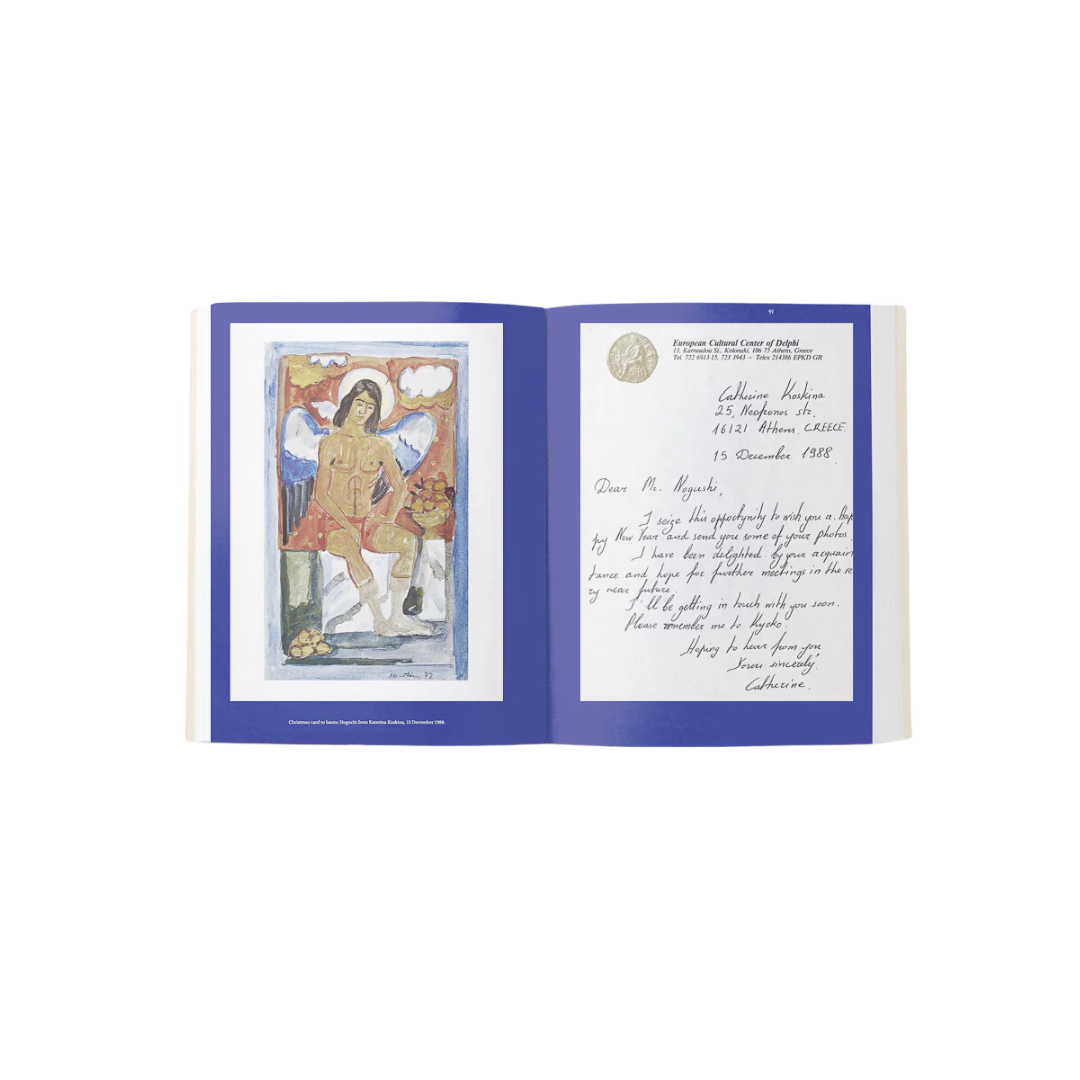 72
Christmas card to Isamu Noguchi from Katerina Koskina, 15 December 1988.
91
European Cultural Center of Delphi
15, Karneadou St., Kolonaki, 106 75 Athens, Greece
Tel. 722 6913-15, 723 3943 — Telex 214386 EPKD GR
Catherine Koskina
25, Neofronos str.
16121 Athens, GREECE.
15 December 1988.
Dear Mr. Nogushi,
I seize this opportynity to wish you a. Hap
py New Year and send you some of your photos.
I have been delighted by your acquain
tance and hope for further meetings in the ve
ry near future.
I'll be getting in touch with you soon.
Please remember me to Kyoko.
Hoping to hear from you
Yours sincerely,
Catherine.